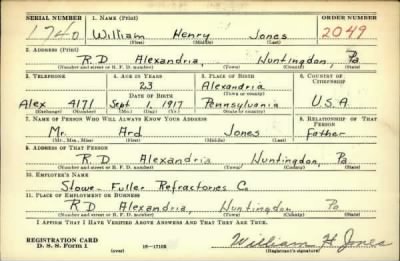 SERIAL NUMBER 1. NAME (Print) ORDER NUMBER
1740 William Henry Jones 2049
(First) (Middle) (Last)
2. ADDRESS (Print)
R D Alexandria, Huntingdon, Pa.
(Number and street or R. F. D. number) (Town) (County) (State)
3. TELEPHONE 4. AGE IN YEARS 5. PLACE OF BIRTH 6. COUNTRY OF CITIZENSHIP
23 Alexandria
(Town or county)
DATE OF BIRTH
Alex 4171 Sept 1, 1917 Pennsylvania U.S.A.
(Exchange) (Number) (Mo.) (Day) (Yr.) (State or country)
7. NAME OF PERSON WHO WILL ALWAYS KNOW YOUR ADDRESS 8. RELATIONSHIP OF THAT PERSON
Mr. Ard Jones Father
(Mr., Mrs., Miss) (First) (Middle) (Last)
9. ADDRESS OF THAT PERSON
R D Alexandria Huntingdon, Pa
(Number and street or R. F. D. number) (Town) (County) (State)
10. EMPLOYER'S NAME
Stowe-Fuller Refractories C
11. PLACE OF EMPLOYMENT OR BUSINESS
R D Alexandria, Huntingdon Pa
(Number and street or R. F. D. number) (Town) (County) (State)
I AFFIRM THAT I HAVE VERIFIED ABOVE ANSWERS AND THAT THEY ARE TRUE.
REGISTRATION CARD
D. S. S. Form 1 (over) 16-17105 William H Jones
(Registrant's signature)